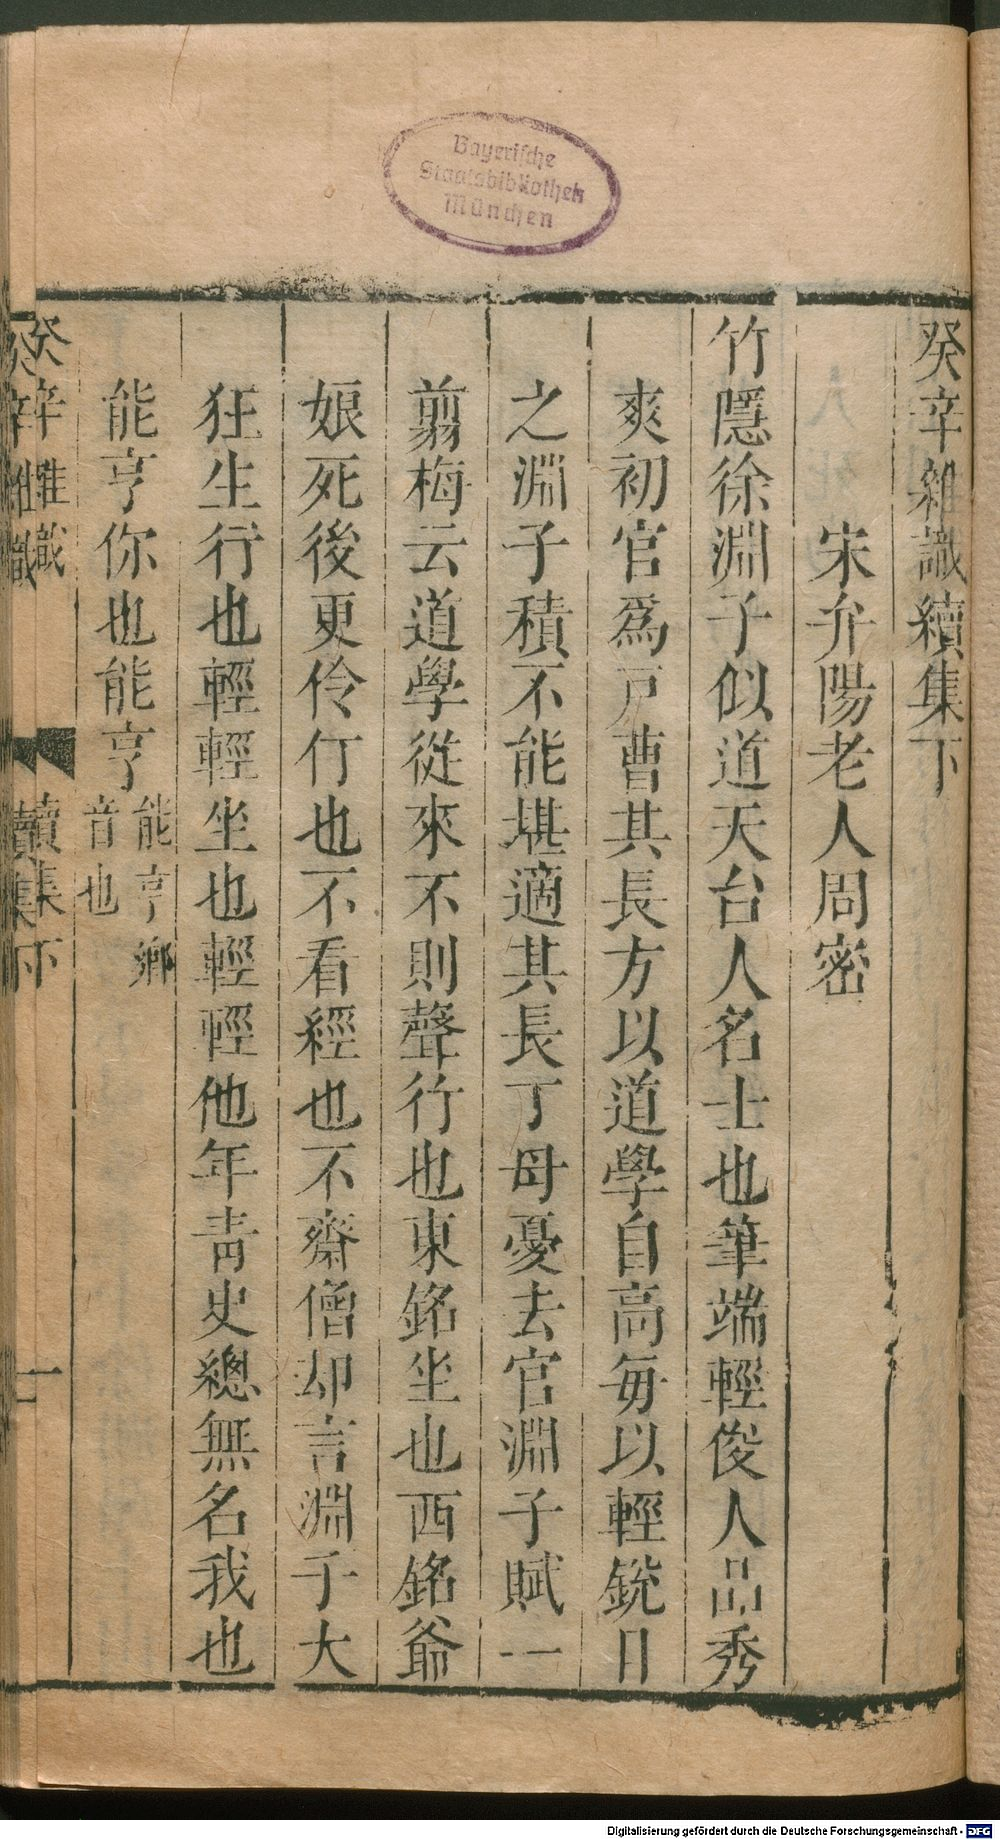 Bayerische
Staatsbibliothek
München
癸辛雜識續集下
宋弁陽老人周密
竹隱徐淵子似道天台人名士也筆端輕俊人品秀
爽初官爲戸曹其長方以道學自高每以輕銳目
之淵子積不能堪適其長丁母憂去官淵子賦一
翦梅云道學從來不則聲行也東銘坐也西銘爺
娘死後更伶仃也不看經也不齋僧却言淵子大
狂生行也輕輕坐也輕輕他年青史總無名我也
能亨你也能亨能亨鄉
音也
癸辛雜識
續集下
一
癸辛雜識
續集下
Digitalisierung gefördert durch die Deutsche Forschungsgemeinschaft - DFG